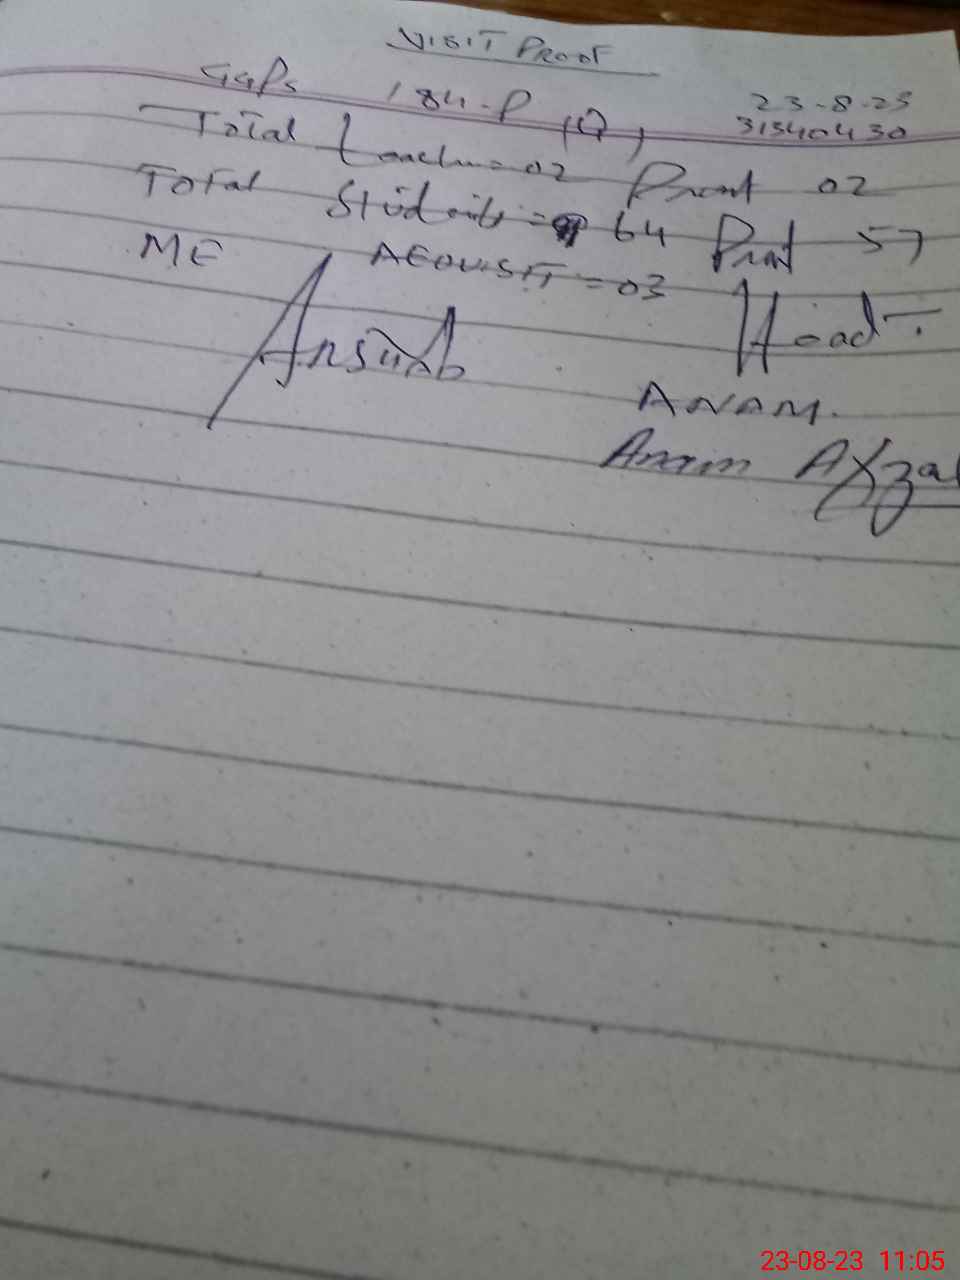 VISIT PROOF
GGPS 184-P (Q)
23-8-23
31340430
Total Teacher = 02 Present 02
Total Students = 64 Present 57
ME AEO VISIT = 03
Head:
ANAM.
Anam Afzal
23-08-23 11:05